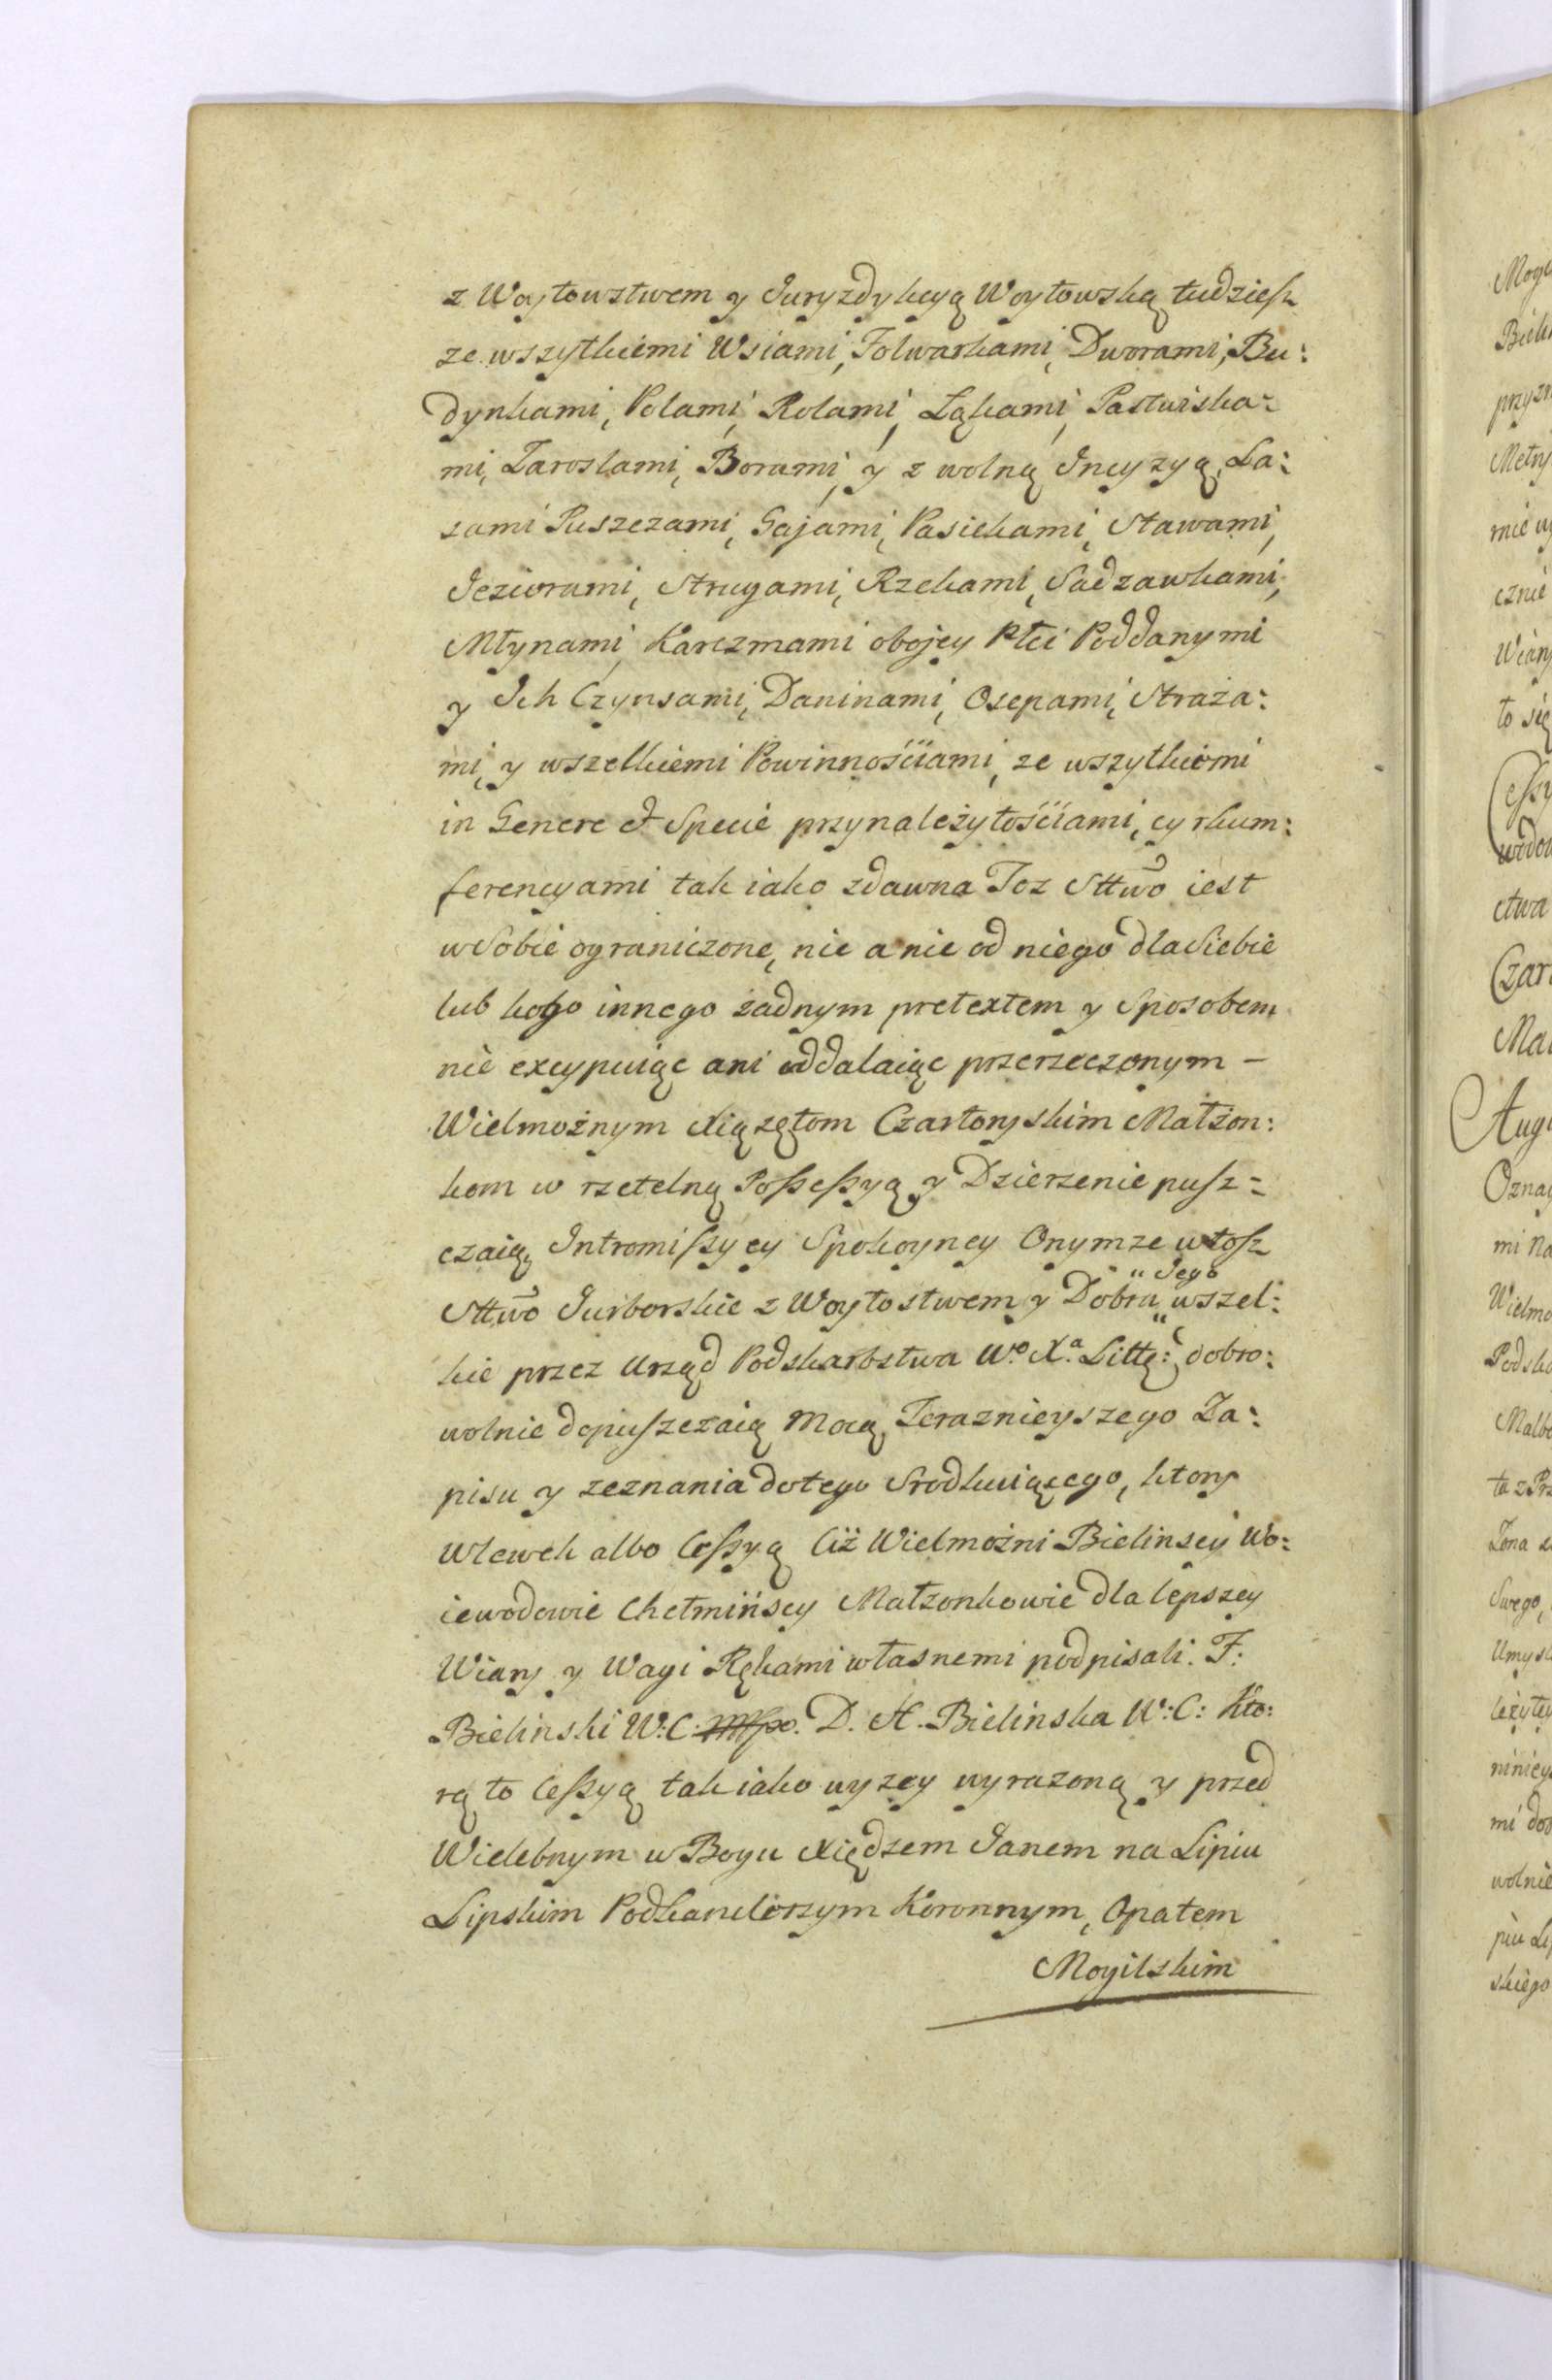 z Woytowstwem y Juryzdykcyą Woytowską tudziesz
ze wszytkiemi Wsiami, Folwarkami, Dworami, Bu:
dynkami, Polami, Rolami, Łąkami, Pastwiska:
mi, Zaroslami, Borami, y z wolną Incyzyą, La:
sami Puszczami, Gajami, Pasiekami, Stawami,
Jeziorami, Strugami, Rzekami, Sadzawkami,
Młynami, Karczmami obojey Płci Poddanymi
y Jch Czynsami, Daninami, Osepami, Straża:
mi, y wszelkiemi Powinnościami, ze wszytkiemi
in Genere et Specie przynależytościami, cyrkum:
ferencyami tak iako zdawna Toz Sttwo iest
w Sobie ograniczone, nic a nic od niego dla Siebie
lub kogo innego żadnym pretextem y Sposobem
nie excypuiąc ani oddalaiąc przerzeczonym –
Wielmożnym Xiązętom Czartoryskim Małżon:
kom w rzetelną Possessyą y Dzierzenie pusz:
czaią, Intromissyey Spokoyney Onymze w tosz
Sttwo Jurborskie z Woytostwem y Dobra "Jego" wszel:
kie przez Urząd Podskarbstwa W.º X.ª Littę: dobro:
wolnie dopuszczaią Mocą Teraznieyszego Za:
pisu y zeznania do tego Srodkuiącego, ktory
Wlewek albo Cessyą Ciż Wielmożni Bielinscy Wo:
iewodowie Chełmińscy Małzonkowie dla lepszey
Wiary y Wagi Rękami własnemi podpisali. F:
Bielinski W: C. D. H. Bielinska W: C: Kto:
rą to Cessyą tak iako wyzey wyrazoną y przed
Wielebnym w Bogu Xiędzem Janem na Lipiu
Lipskim Podkanclerzym Koronnym, Opatem
Mogilskim